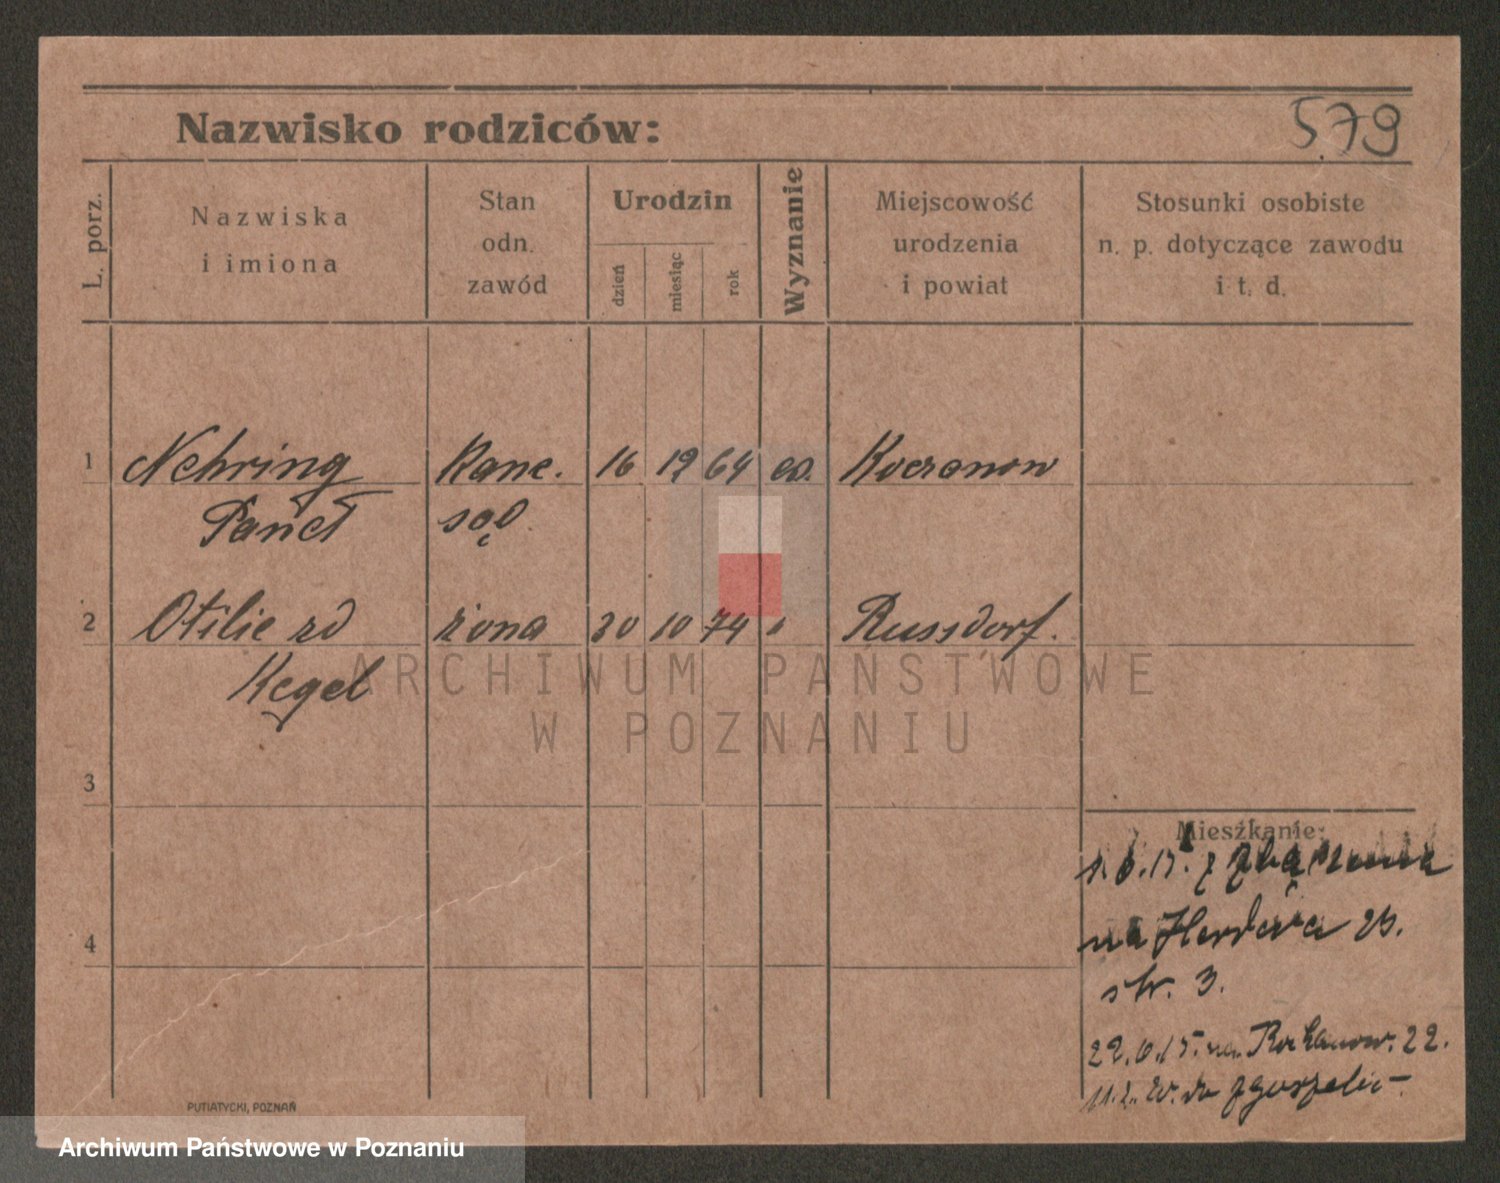 Nazwisko rodziców:
579
L. porz.
Nazwiska
i imiona
Stan
odn.
zawód
Urodzin
dzień
miesiąc
rok
Wyznanie
Miejscowość
urodzenia
i powiat
Stosunki osobiste
n. p. dotyczące zawodu
i t. d.
1 Nehring Kanc. 16 12 64 ew.
Paweł sąd.
2 Otilie zd żona 30 10 74 " Russdorf.
Kegel
3
4
Mieszkanie:
1. 6. 15. z
na 23.
str. 3.
22. 6. 15. na 22.
PUTIATYCKI, POZNAŃ
ARCHIWUM PAŃSTWOWE
W POZNANIU
Archiwum Państwowe w Poznaniu